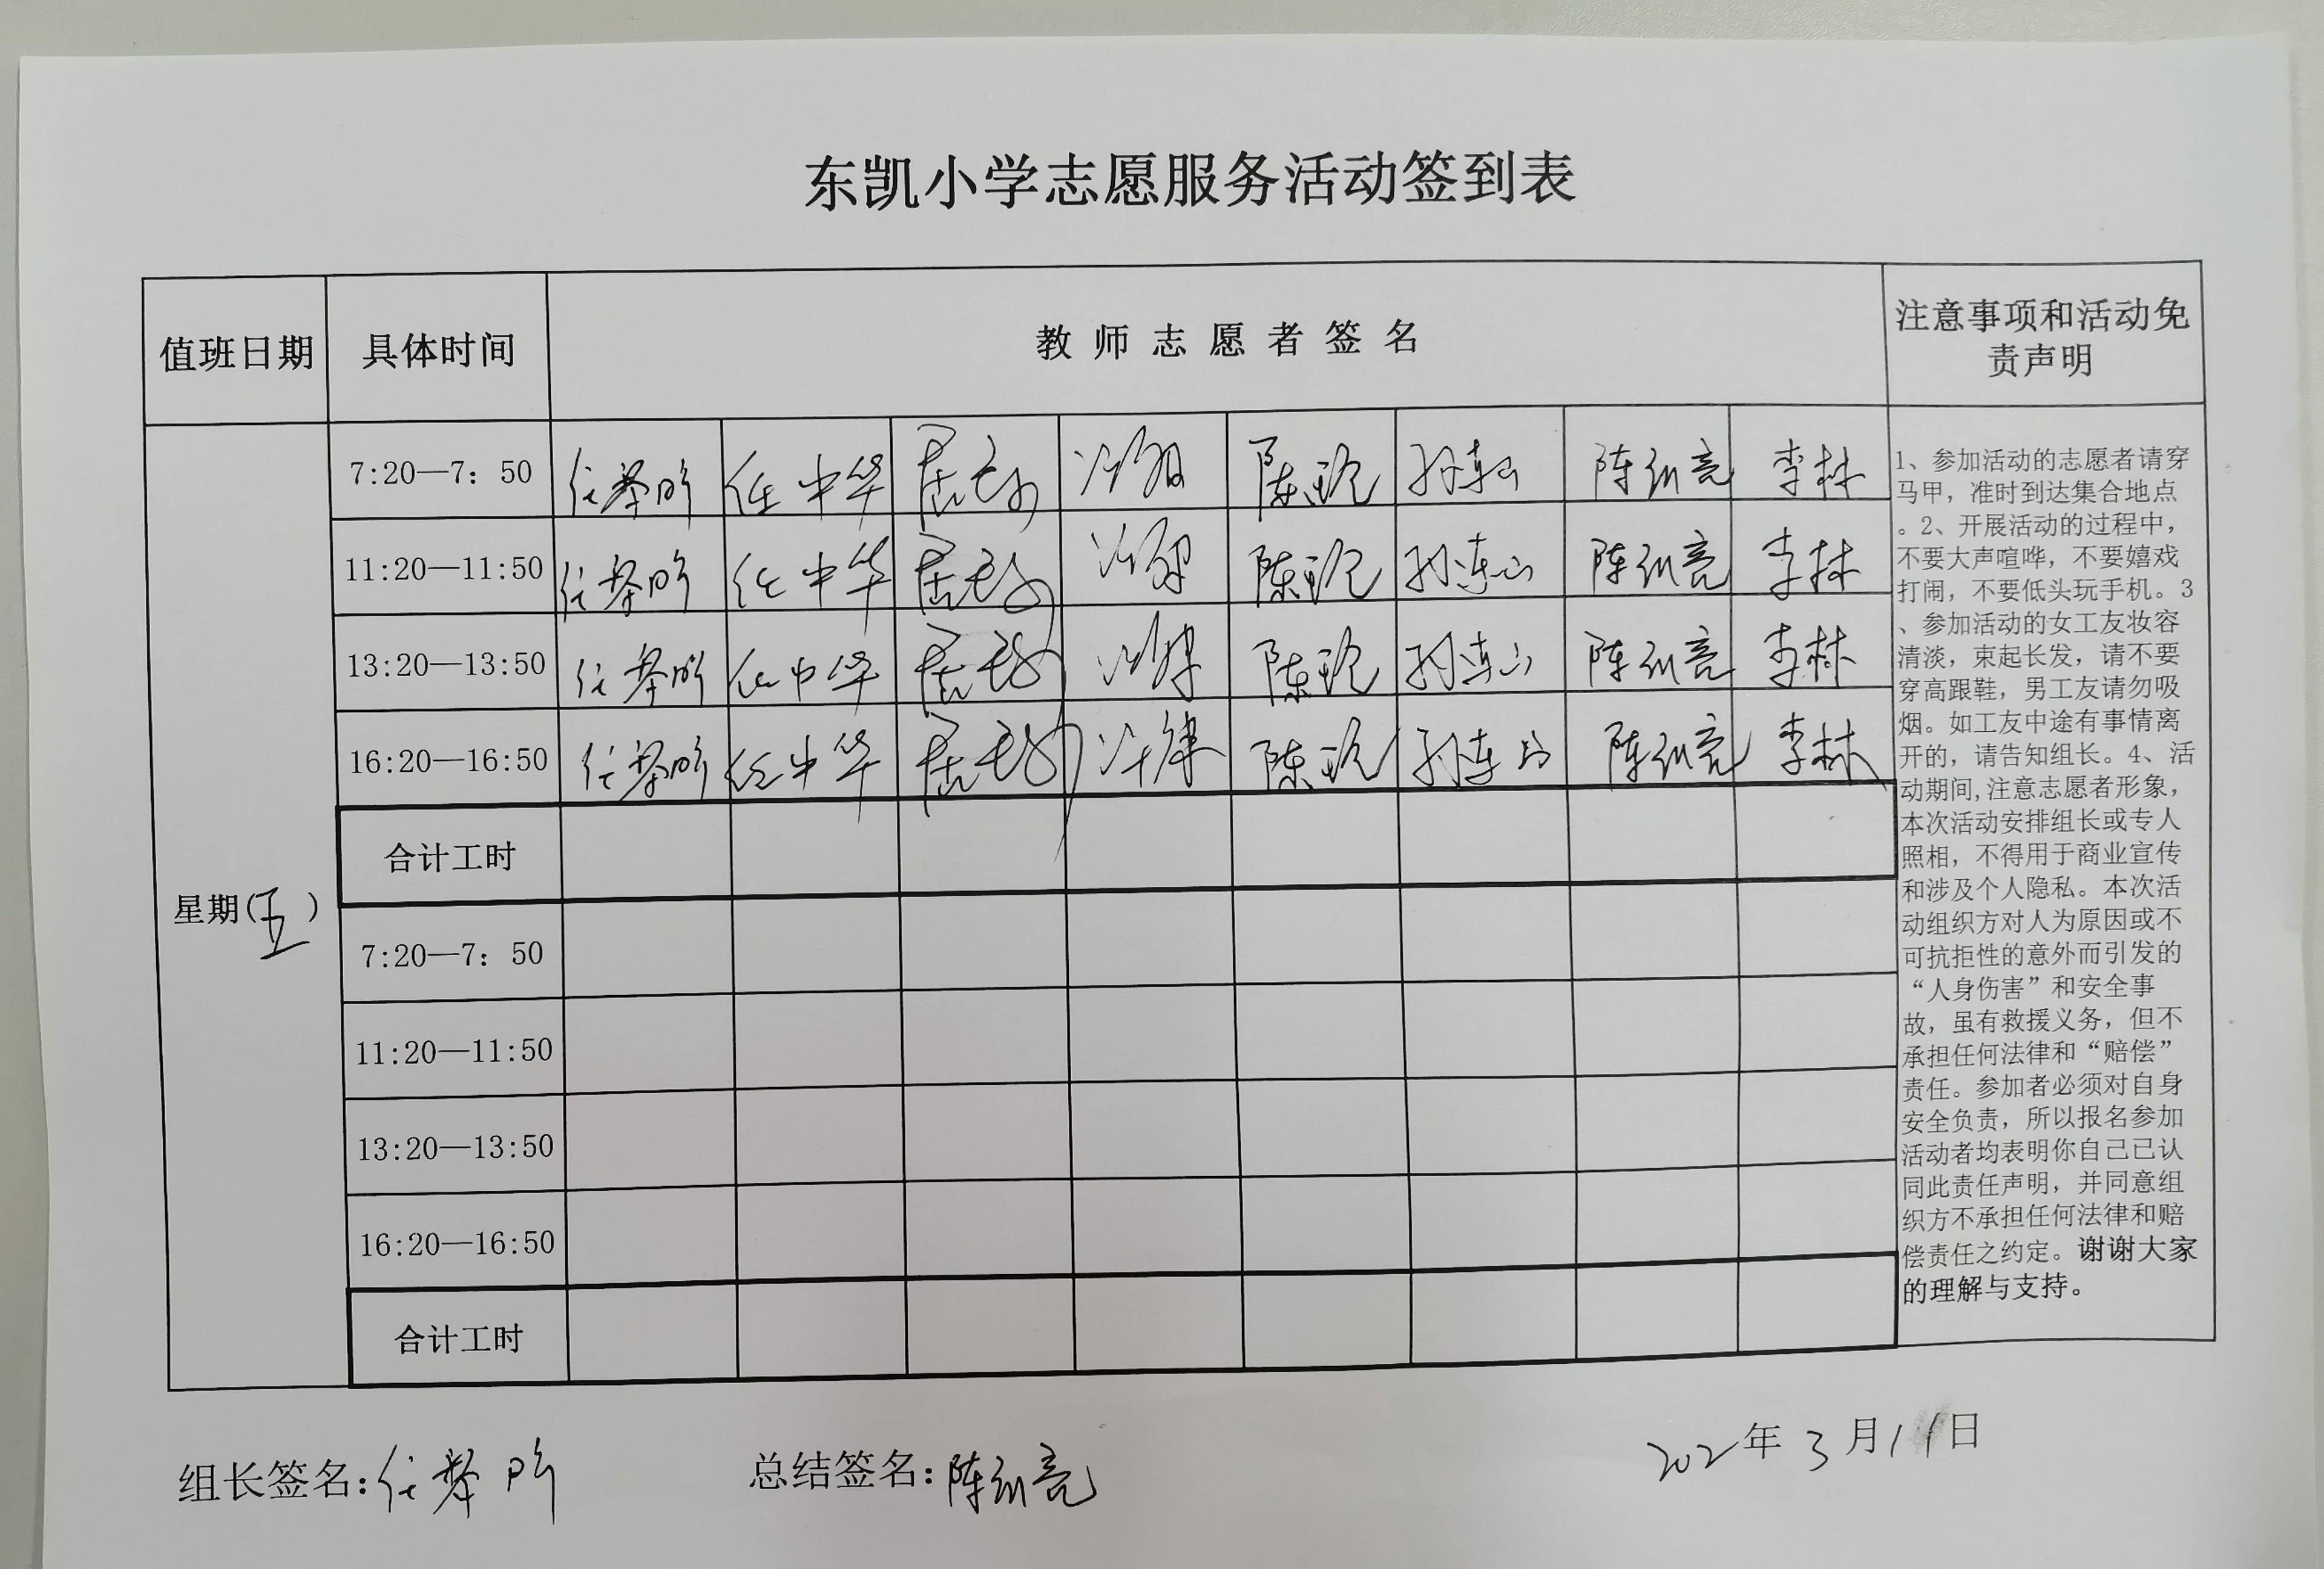 东凯小学志愿服务活动签到表
值班日期 具体时间 教师志愿者签名 注意事项和活动免
责声明
星期(五)
7:20—7：50 任 任中华 陈 孙连山 陈训亮 李林
11:20—11:50 任 任中华 陈 孙连山 陈训亮 李林
13:20—13:50 任 任中华 陈 孙连山 陈训亮 李林
16:20—16:50 任 任中华 陈 孙连山 陈训亮 李林
合计工时
7:20—7：50
11:20—11:50
13:20—13:50
16:20—16:50
合计工时
1、参加活动的志愿者请穿
马甲，准时到达集合地点
。2、开展活动的过程中，
不要大声喧哗，不要嬉戏
打闹，不要低头玩手机。3
、参加活动的女工友妆容
清淡，束起长发，请不要
穿高跟鞋，男工友请勿吸
烟。如工友中途有事情离
开的，请告知组长。4、活
动期间,注意志愿者形象，
本次活动安排组长或专人
照相，不得用于商业宣传
和涉及个人隐私。本次活
动组织方对人为原因或不
可抗拒性的意外而引发的
“人身伤害”和安全事
故，虽有救援义务，但不
承担任何法律和“赔偿”
责任。参加者必须对自身
安全负责，所以报名参加
活动者均表明你自己已认
同此责任声明，并同意组
织方不承担任何法律和赔
偿责任之约定。谢谢大家
的理解与支持。
组长签名:任 总结签名:陈训亮 2022年3月11日